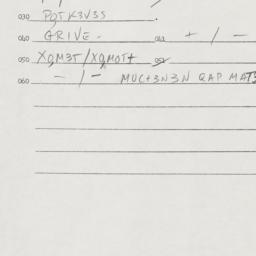 030 PQTK3V3S .
040 GRIVE - 041 + / -
050 XQM3T/XQMOT+ 051
060 - / - MUC+3N3N QAP MAT3